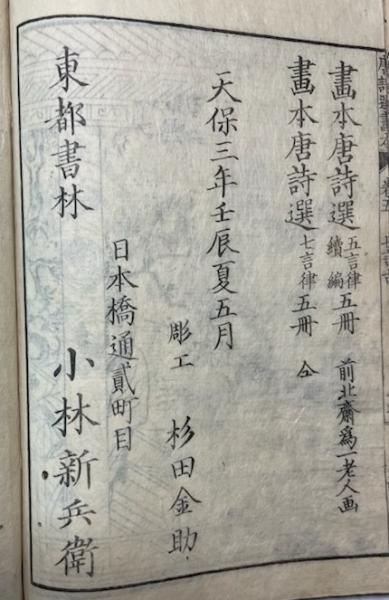 畫本唐詩選 五言律 續編 五冊 前北齋爲一老人画
畫本唐詩選 七言律 五冊 仝
天保三年壬辰夏五月
彫工 杉田金助
日本橋通貳町目
東都書林 小林新兵衛